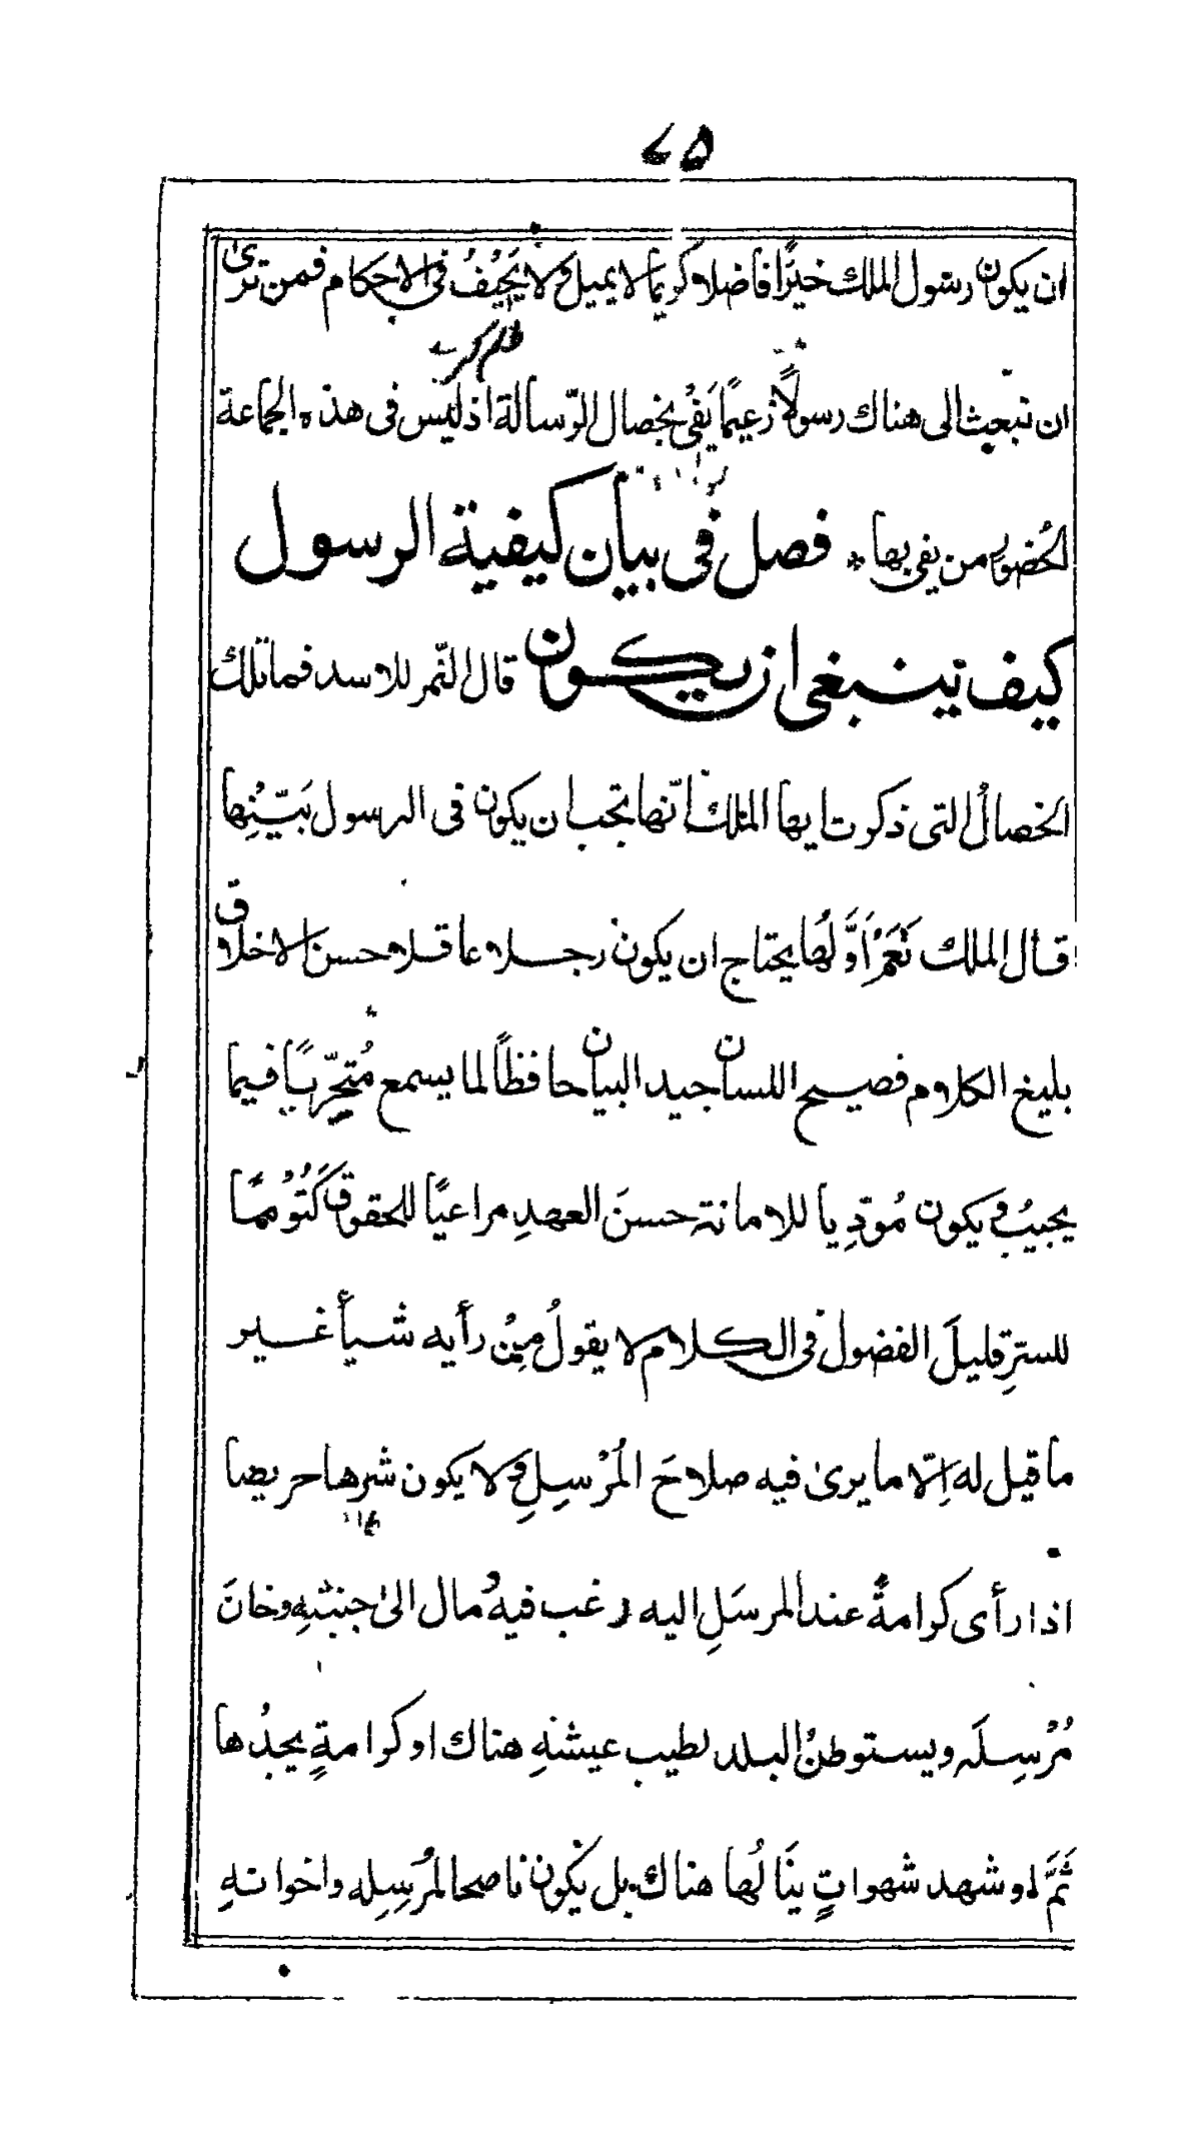 ان يكون رسول الملك خيّرًا فاضلا وكريما لا يميل ولا يَحِيْفُ فى الاحكام فمن ترىٰ
ان تبعث الى هناك رسولًا زعيمًا يَفِىْ بخصال الرّسالة اذ ليس فى هذه الجماعة
الحُضور من يفى بها * فصل فى بيان كيفية الرسول
كيف ينبغى ان يكون قال النّمر للاسد فما تلك
الخصالُ التى ذكرت ايها الملك انّها تجب ان يكون فى الرسول بَيّنْها
قال الملك نَعَمْ اَوَّلُها يحتاج ان يكون رجلا عاقلا حسن الاخلاق
بليغ الكلام فصيح اللسان جيد البيان حافظاً لما يسمع مُتحرِّيًا فيما
يجيبُ ويكون مُودِّيا للامانة حسنَ العهدِ مراعيًا للحقوق كَتُوْمًا
للسترِ قليلَ الفضول فى الكلام لا يقولُ مِنْ رأيه شيأ غير
ما قيل له اِلّا ما يرىٰ فيه صلاحَ المُرْسِلِ ولا يكون شرها حريصا
اذا رأى كرامةً عند المرسَلِ اليه رغب فيه ومال الىٰ جنبتهِ وخانَ
مُرْسِلَه ويستوطنُ البلد لطيب عيشهِ هناك او كرامةٍ يجدُها
ثَمَّ او شهد شهواتٍ ينَالُها هناك بل يكون ناصحا لمُرسِلِه واخوانهِ